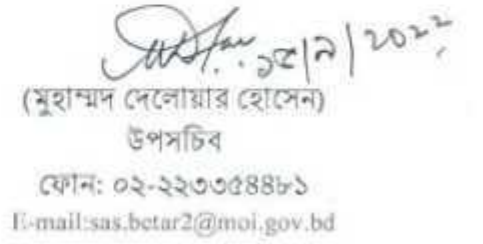 ১৫|৯|২০২২
(মুহাম্মদ দেলোয়ার হোসেন)
উপসচিব
ফোন: ০২-২২৩৩৫৪৪৮১
E-mail:sas.betar2@moi.gov.bd